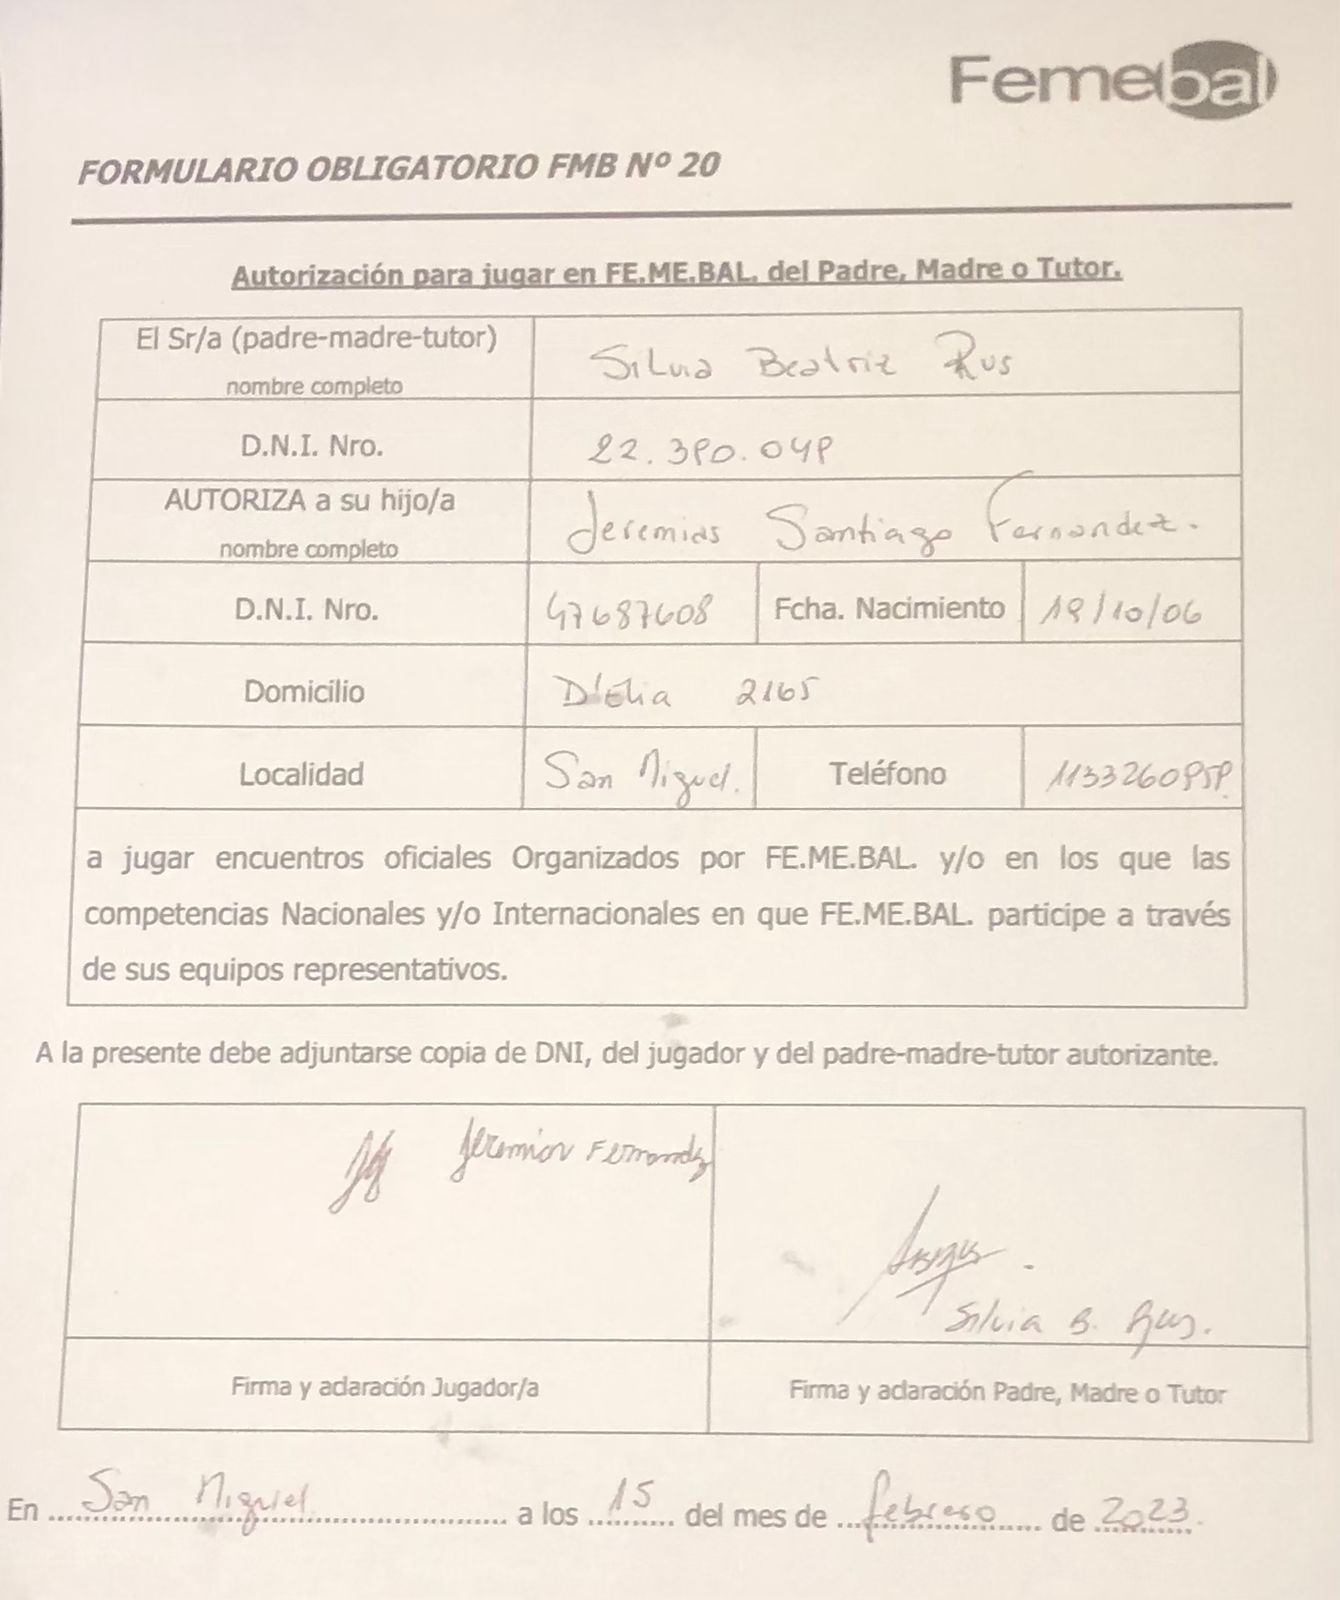 Femebal
FORMULARIO OBLIGATORIO FMB Nº 20
Autorización para jugar en FE.ME.BAL. del Padre, Madre o Tutor.
El Sr/a (padre-madre-tutor)
nombre completo
Silvia Beatriz Rus
D.N.I. Nro.
22.390.049
AUTORIZA a su hijo/a
nombre completo
Jeremias Santiago Fernandez.
D.N.I. Nro.
47687608
Fcha. Nacimiento
/10/06
Domicilio
D'Elia 2165
Localidad
San Miguel.
Teléfono
1133260959
a jugar encuentros oficiales Organizados por FE.ME.BAL. y/o en los que las
competencias Nacionales y/o Internacionales en que FE.ME.BAL. participe a través
de sus equipos representativos.
A la presente debe adjuntarse copia de DNI, del jugador y del padre-madre-tutor autorizante.
Jeremias Fernandez
Silvia B. Rus.
Firma y aclaración Jugador/a
Firma y aclaración Padre, Madre o Tutor
En San Miguel a los 15 del mes de febrero de 2023.